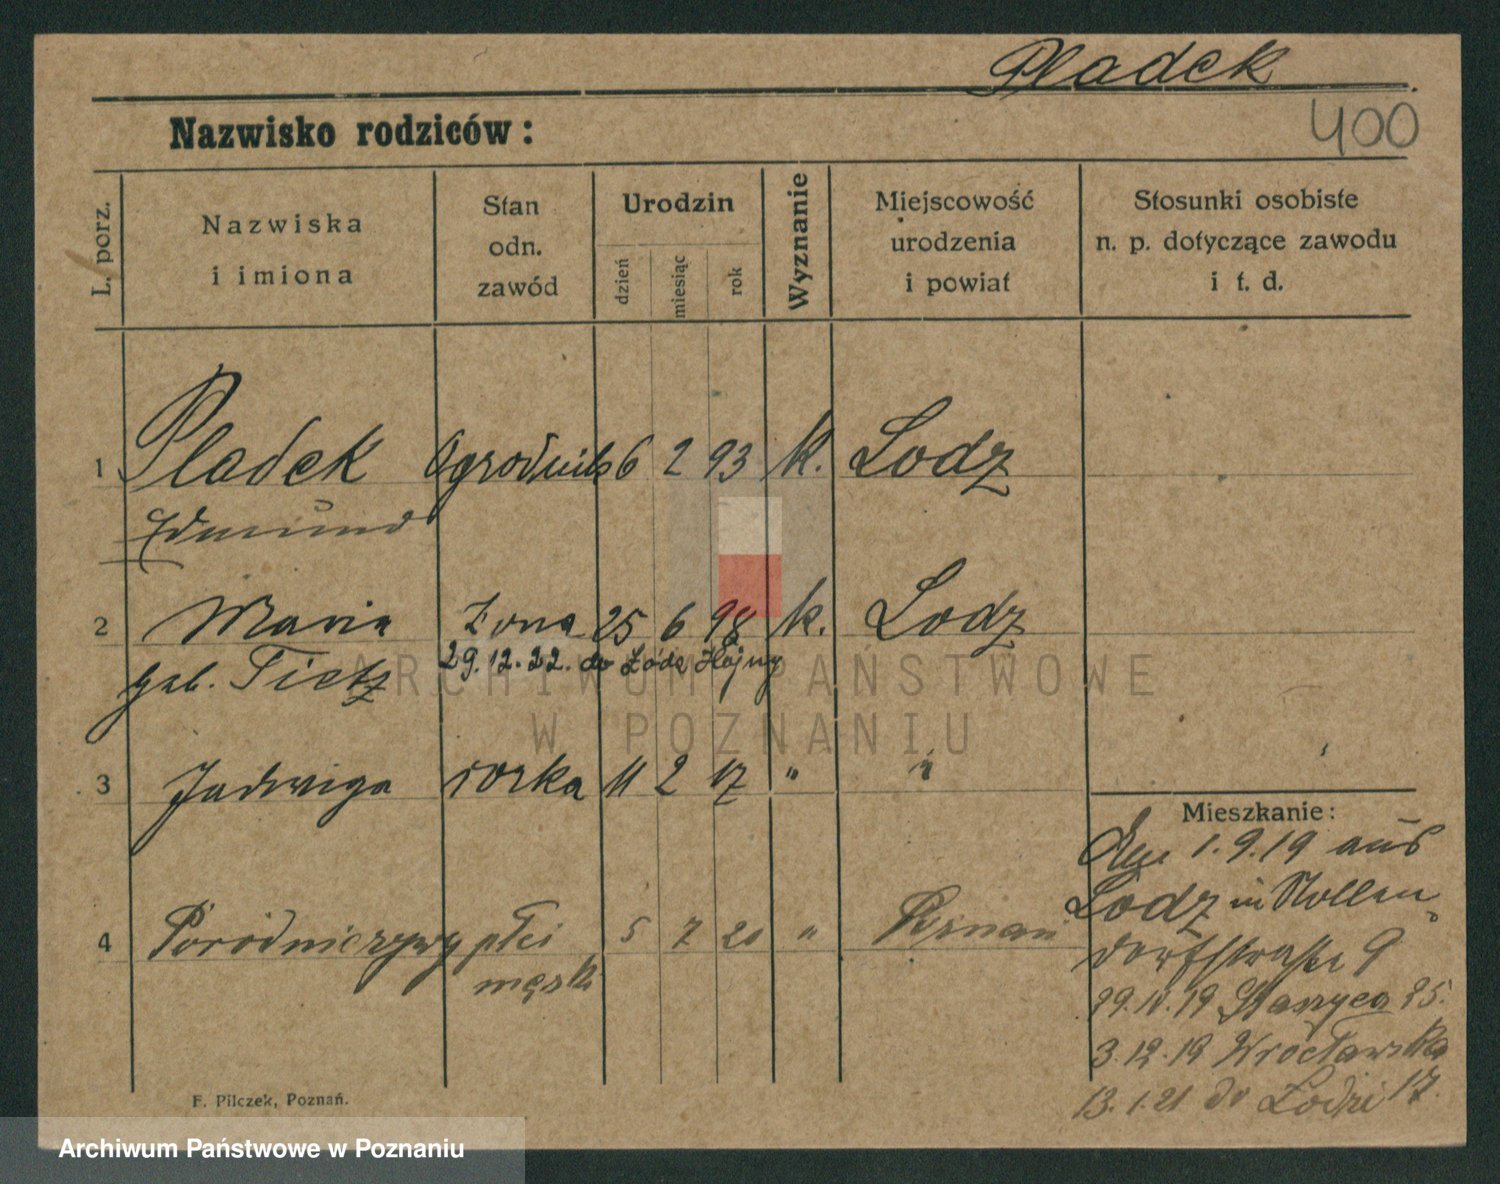 Pladek
400
Nazwisko rodziców:
L. porz.
Nazwiska
i imiona
Stan
odn.
zawód
Urodzin
dzień
miesiąc
rok
Wyznanie
Miejscowość
urodzenia
i powiat
Stosunki osobiste
n. p. dotyczące zawodu
i t. d.
1 Pladek Ogrodnik 6 2 93 k. Lodz
Edmund
2 Maria Żona 25 6 98 k. Lodz
geb. Tietz 29.12.22. do
3 Jadwiga corka 11 2 17 " "
4 płci 5 7 20 " Poznań
męsk.
Mieszkanie:
1.9.19 aus
Lodz in Nollen
dorfstrasse 9
29.10.19 Staszyca 25.
3.12.19 Wrocławska
13.1.21 do Łodzi 17.
F. Pilczek, Poznań.
ARCHIWUM PAŃSTWOWE
W POZNANIU
Archiwum Państwowe w Poznaniu